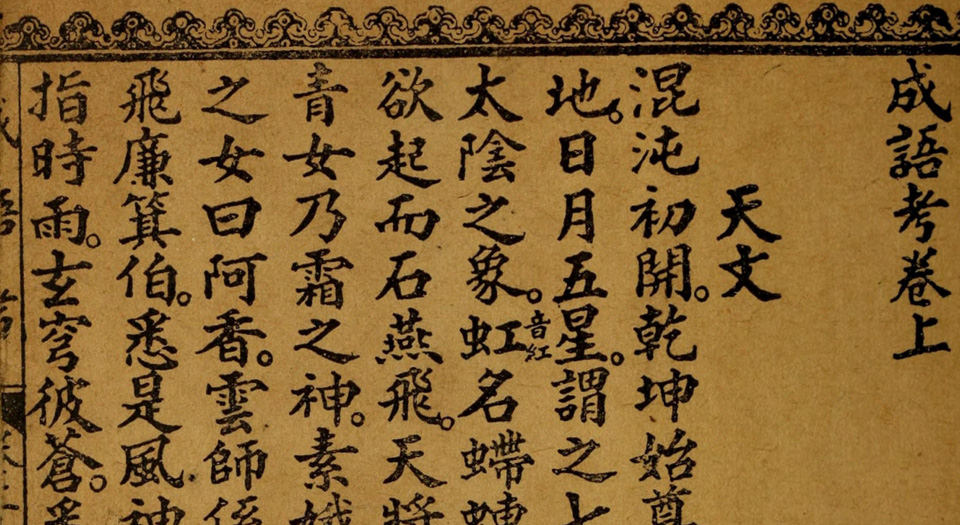 成語考卷上
天文
混沌初開。乾坤始
地。日月五星。謂之七
太陰之象。虹音紅名螮蝀
欲起而石燕飛。天將
青女乃霜之神。素娥
之女曰阿香。雲師係
飛廉箕伯。悉是風神
指時雨。玄穹彼蒼。